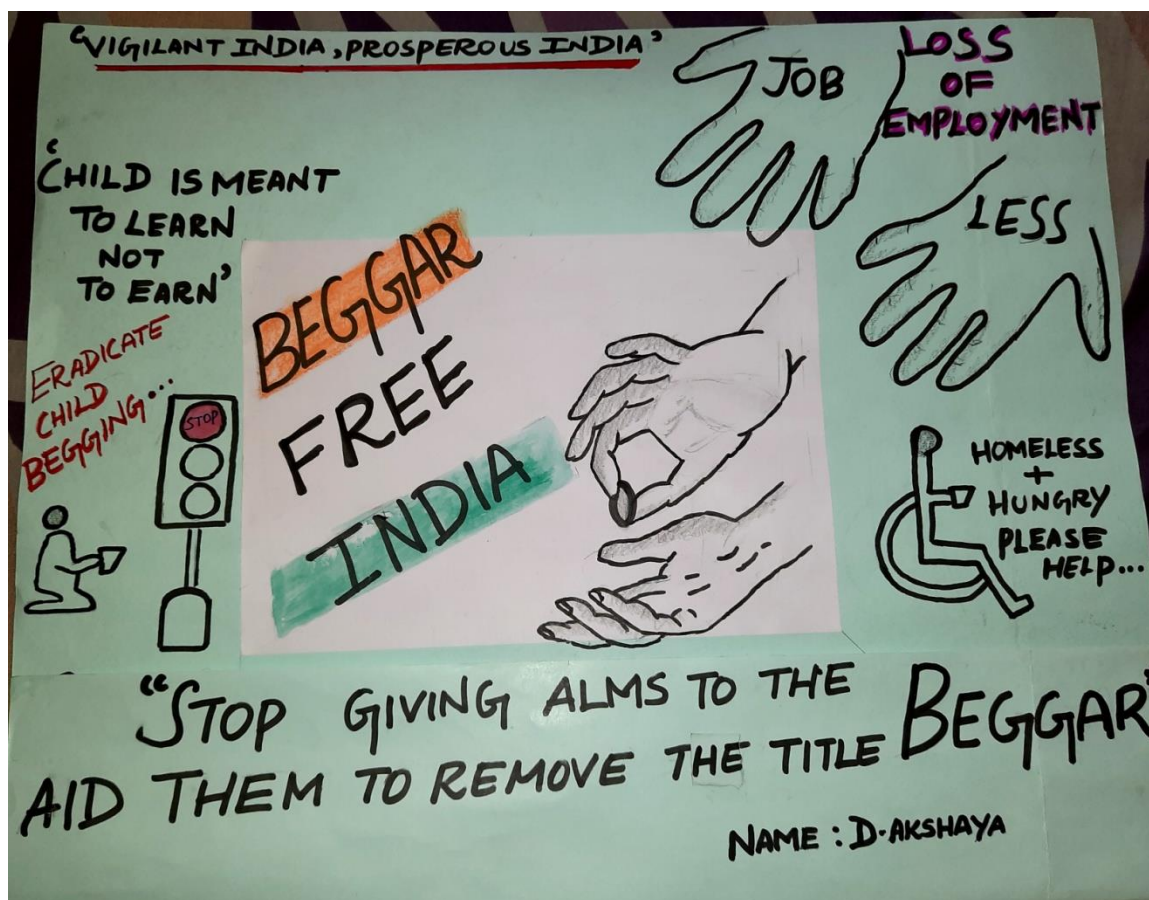 "VIGILANT INDIA, PROSPEROUS INDIA"
JOB
LOSS
OF
EMPLOYMENT
LESS
'CHILD IS MEANT
TO LEARN
NOT
TO EARN'
ERADICATE
CHILD
BEGGING...
STOP
BEGGAR
FREE
INDIA
HOMELESS
+
HUNGRY
PLEASE
HELP...
"STOP GIVING ALMS TO THE BEGGAR"
AID THEM TO REMOVE THE TITLE
NAME : D.AKSHAYA